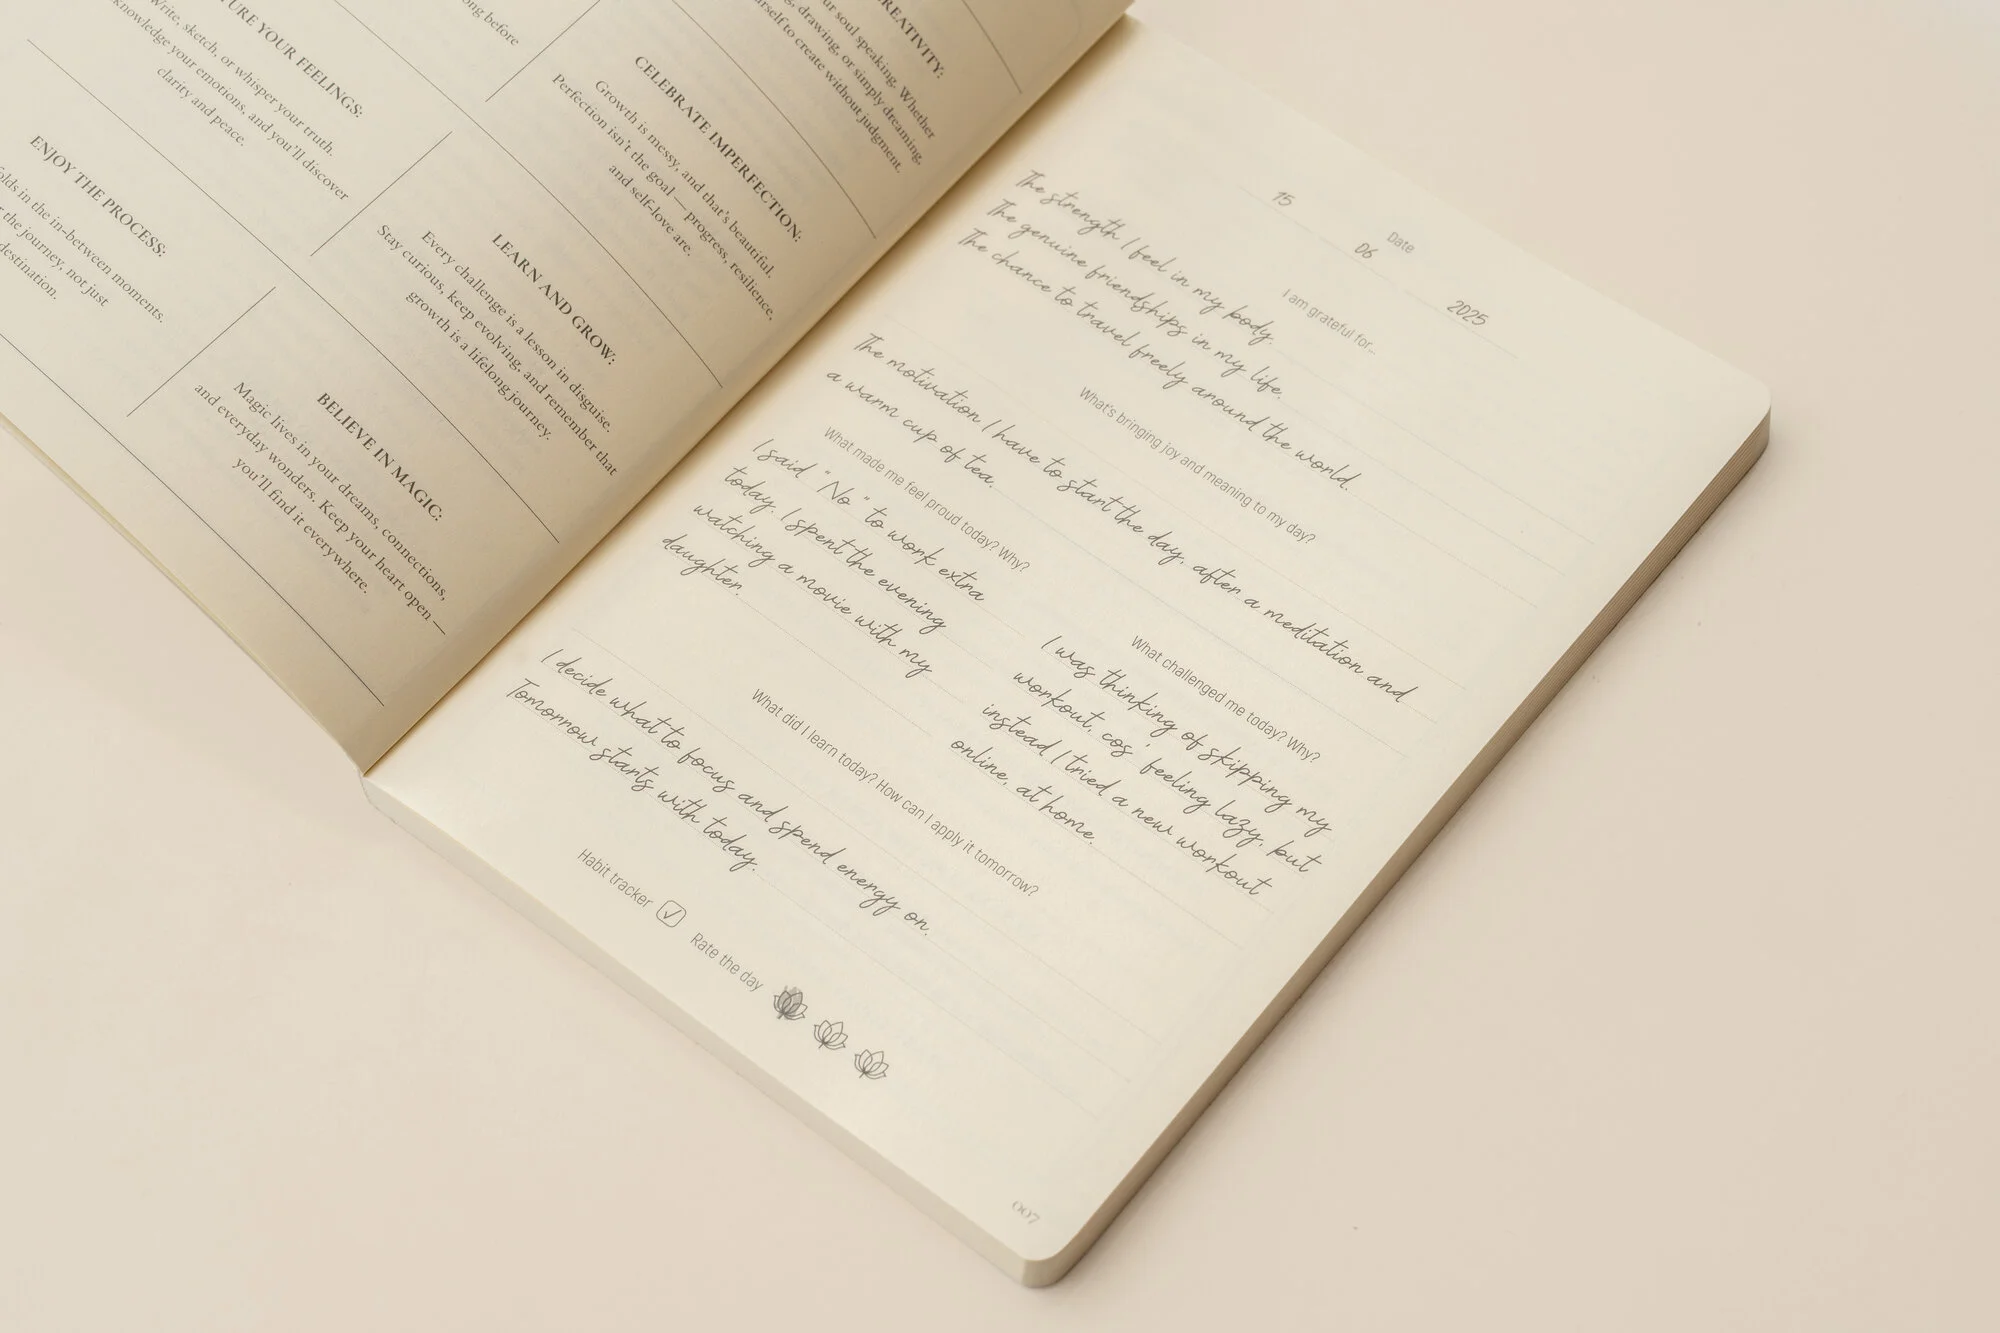 TURE YOUR FEELINGS:
Write, sketch, or whisper your truth.
knowledge your emotions, and you'll discover
clarity and peace.
ong before
CREATIVITY:
ur soul speaking. Whether
g, drawing, or simply dreaming,
urself to create without judgment.
CELEBRATE IMPERFECTION:
Growth is messy, and that's beautiful.
Perfection isn't the goal — progress, resilience,
and self-love are.
ENJOY THE PROCESS:
olds in the in-between moments.
the journey, not just
destination.
LEARN AND GROW:
Every challenge is a lesson in disguise.
Stay curious, keep evolving, and remember that
growth is a lifelong journey.
BELIEVE IN MAGIC:
Magic lives in your dreams, connections,
and everyday wonders. Keep your heart open —
you'll find it everywhere.
15 06 2025
Date
I am grateful for...
The strength I feel in my body.
The genuine friendships in my life.
The chance to travel freely around the world.
What's bringing joy and meaning to my day?
The motivation I have to start the day, after a meditation and
a warm cup of tea.
What made me feel proud today? Why?
I said "No" to work extra
today. I spent the evening
watching a movie with my
daughter.
What challenged me today? Why?
I was thinking of skipping my
workout, cos' feeling lazy, but
instead I tried a new workout
online, at home.
What did I learn today? How can I apply it tomorrow?
I decide what to focus and spend energy on.
Tomorrow starts with today.
Habit tracker
Rate the day
007